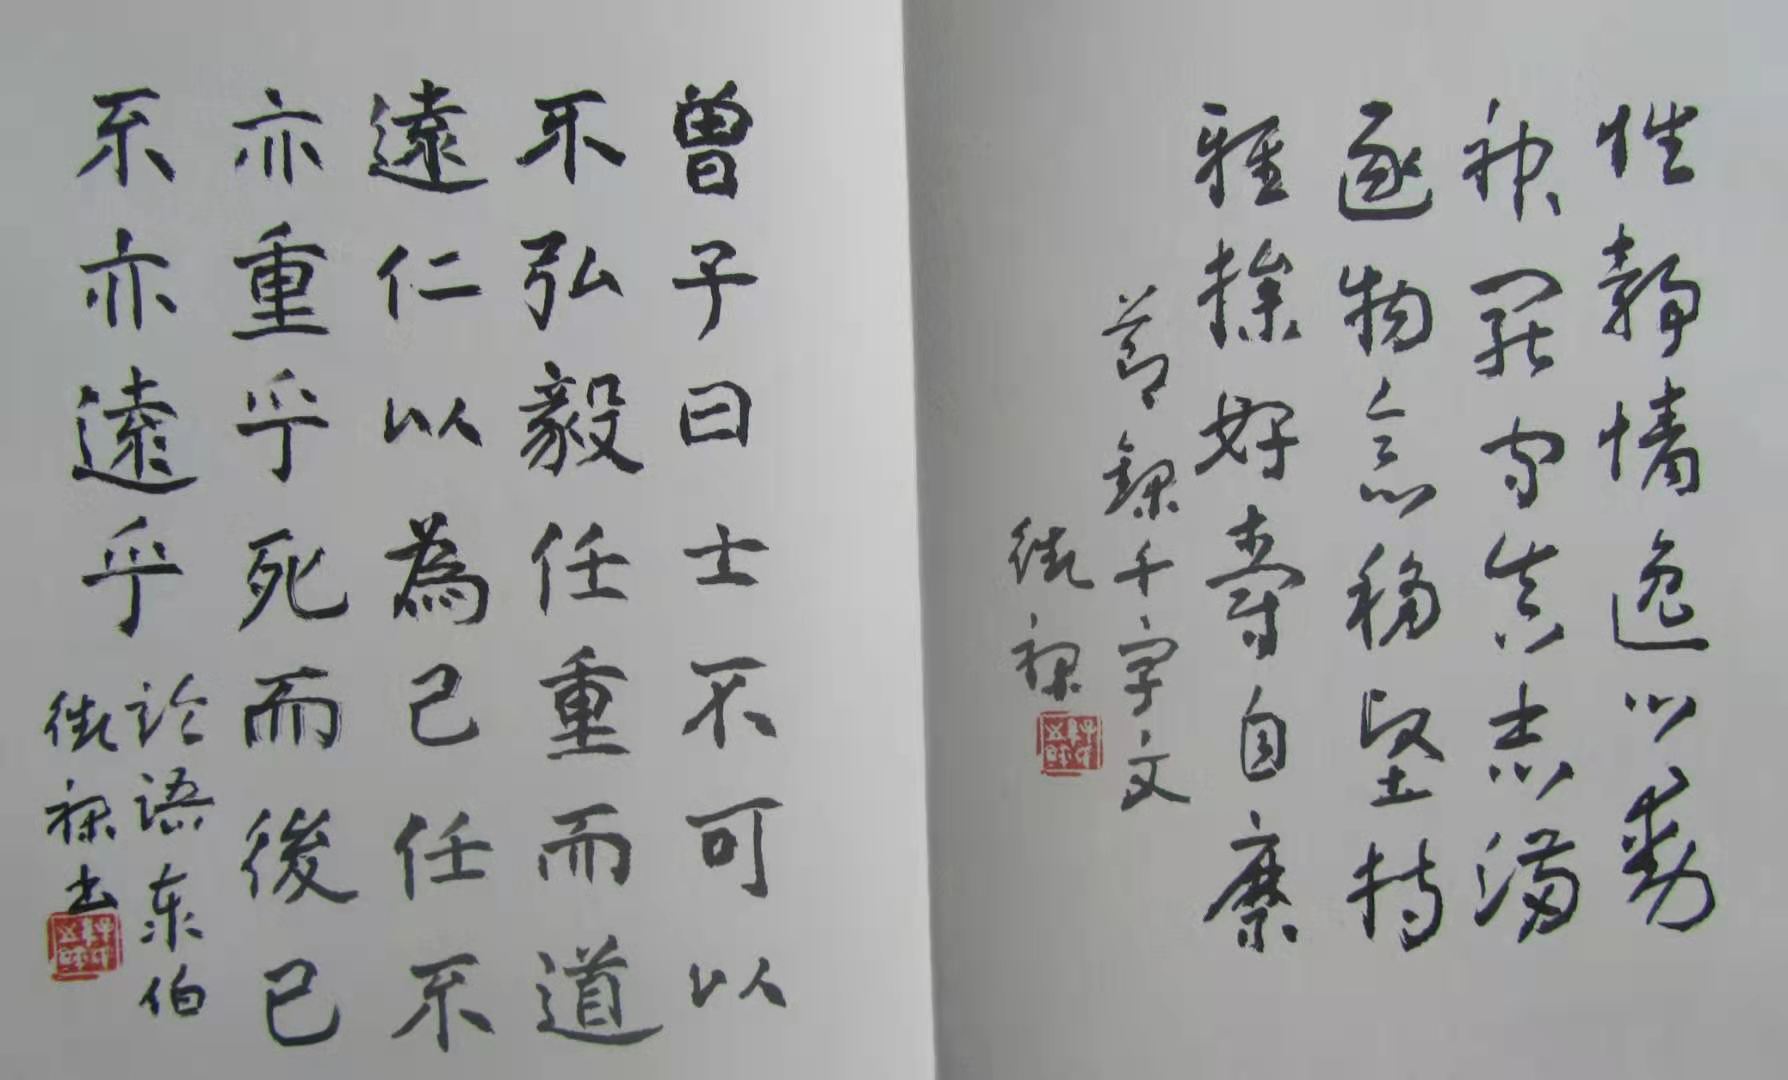 性靜情逸心動
神疲守真志滿
逐物意移堅持
雅操好爵自縻
節錄千字文
曾子曰士不可以
不弘毅任重而道
遠仁以為己任不
亦重乎死而後已
不亦遠乎
論語泰伯
书